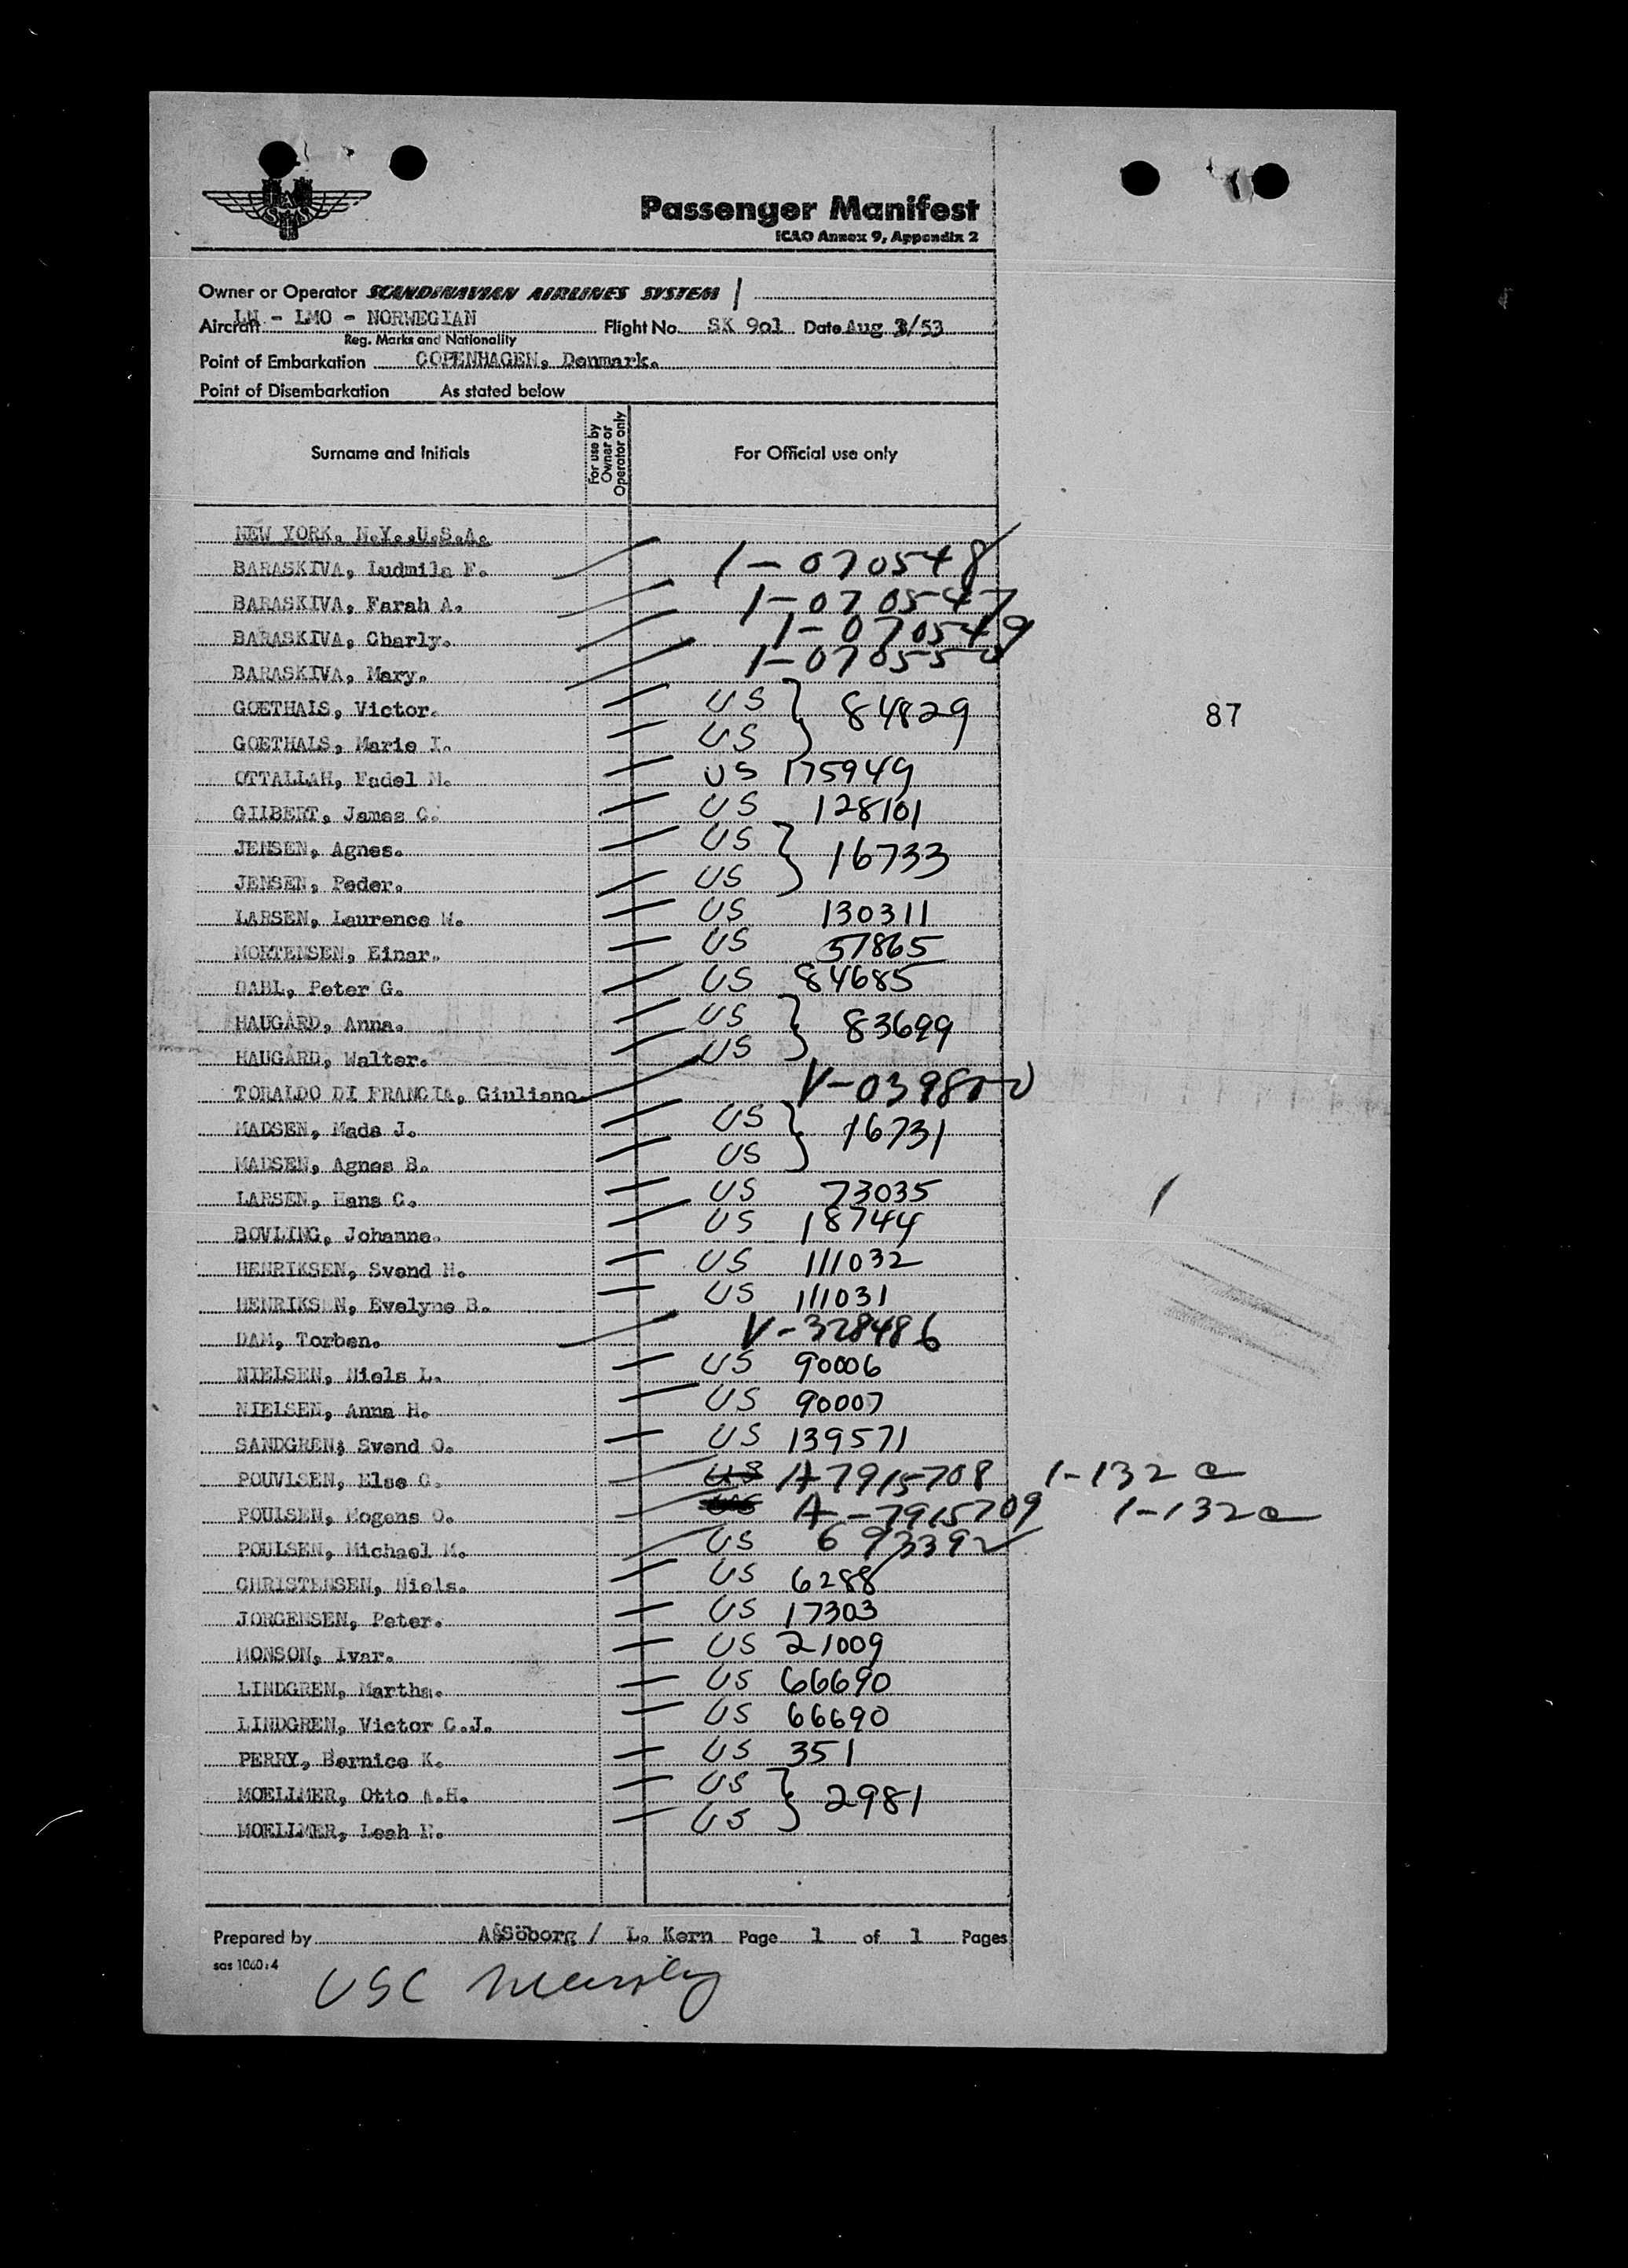 SAS
Passenger Manifest
ICAO Annex 9, Appendix 2
Owner or Operator SCANDINAVIAN AIRLINES SYSTEM
Aircraft LN - LMO - NORWEGIAN Flight No. SK 901 Date Aug 3/53
Reg. Marks and Nationality
Point of Embarkation COPENHAGEN, Denmark.
Point of Disembarkation As stated below
Surname and Initials For use by Owner or Operator only For Official use only
NEW YORK, N.Y.,U.S.A.
BARASKIVA, Ludmila F. 1-070548
BARASKIVA, Farah A. 1-070547
BARASKIVA, Charly. 1-070549
BARASKIVA, Mary. 1-070550
GOETHALS, Victor. US } 84829
87
GOETHALS, Marie I. US
OTTALLAH, Fadel M. US 175949
GILBERT, James C. US 128101
JENSEN, Agnes. US } 16733
JENSEN, Peder. US
LARSEN, Laurence W. US 130311
MORTENSEN, Einar. US 57865
DAHL, Peter G. US 84685
HAUGARD, Anna. US } 83699
HAUGARD, Walter. US
TORALDO DI FRANCIA, Giuliano. V-039800
MADSEN, Mads J. US } 16731
MADSEN, Agnes B. US
LARSEN, Hans C. US 73035
BOVLING, Johanne. US 18744
HENRIKSEN, Svend H. US 111032
HENRIKSEN, Evelyne B. US 111031
DAM, Torben. V-328486
NIELSEN, Niels L. US 90006
NIELSEN, Anna H. US 90007
SANDGREN; Svend O. US 139571
POUVLSEN, Else G. US A7915708 1-132 a
POULSEN, Mogens O. US A-7915709 1-132a
POULSEN, Michael M. US 693392
CHRISTENSEN, Niels. US 6288
JORGENSEN, Peter. US 17303
MONSON, Ivar. US 21009
LINDGREN, Martha. US 66690
LINDGREN, Victor C.J. US 66690
PERRY, Bernice K. US 351
MOELLMER, Otto A.H. US } 2981
MOELLMER, Leah E. US
Prepared by A&Söborg / L. Kern Page 1 of 1 Pages
sas 1060:4
USC